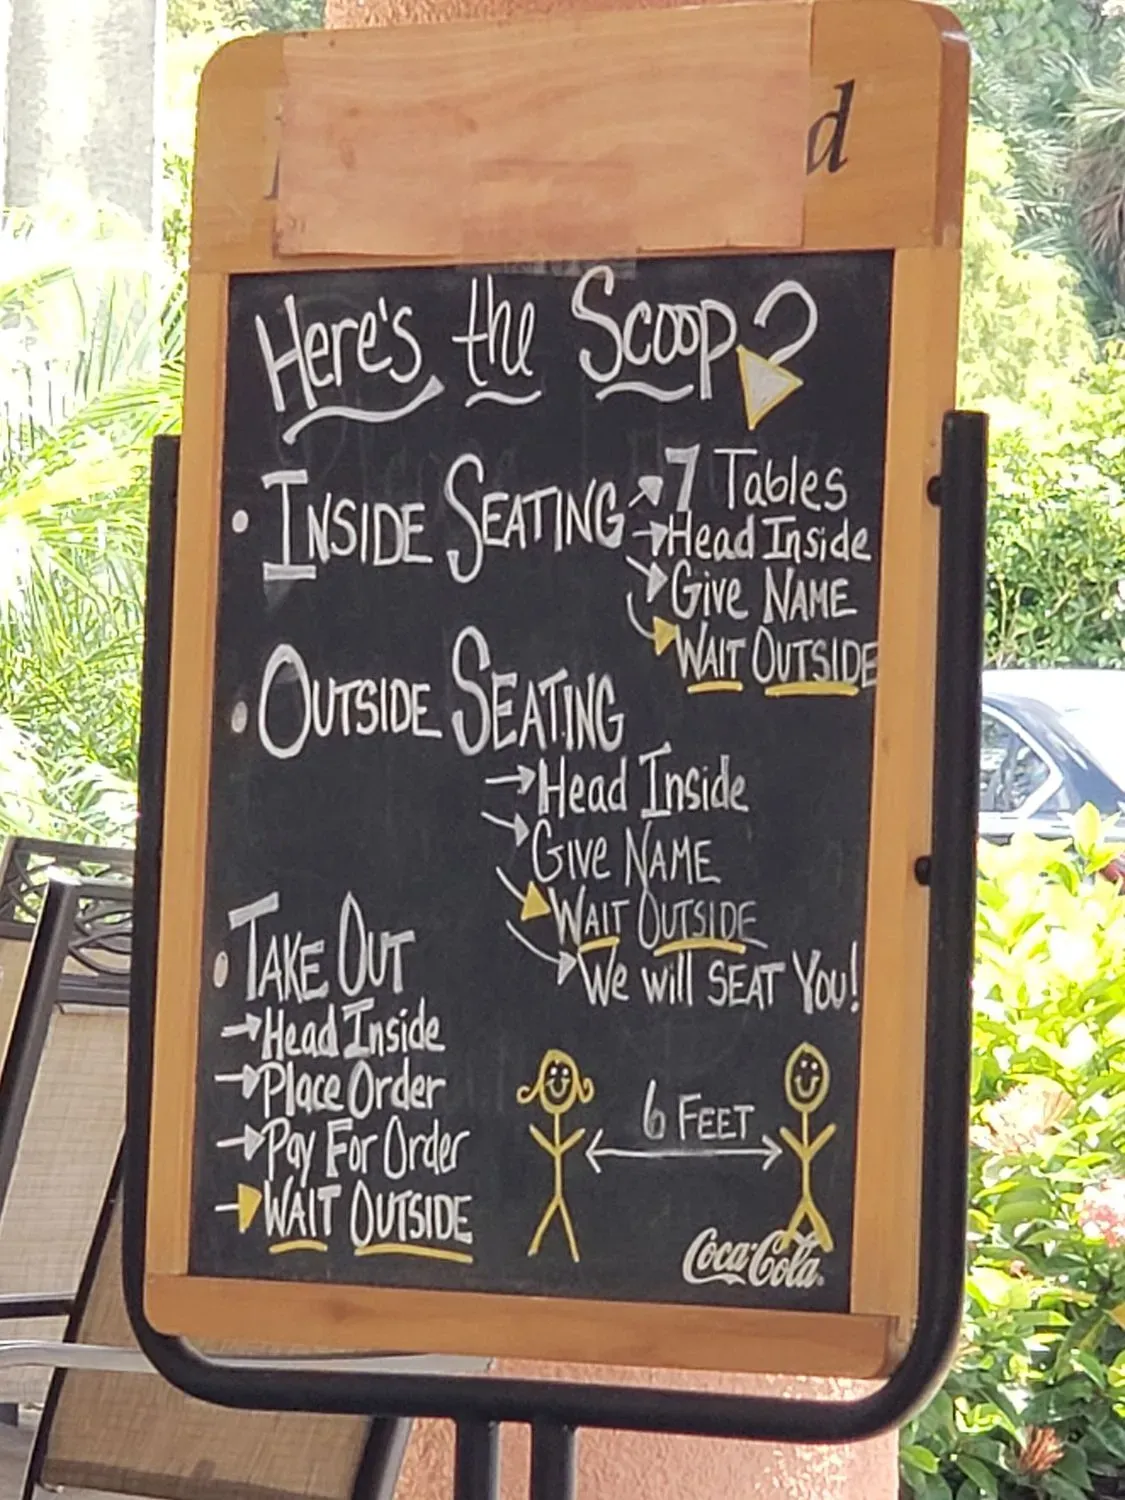 d
Here's the Scoop?
• INSIDE SEATING
→ 7 Tables
→ Head Inside
→ Give NAME
→ WAIT OUTSIDE
• OUTSIDE SEATING
→ Head Inside
→ Give NAME
→ WAIT OUTSIDE
→ We will SEAT YOU!
• TAKE OUT
→ Head Inside
→ Place Order
→ Pay For Order
→ WAIT OUTSIDE
6 FEET
Coca-Cola